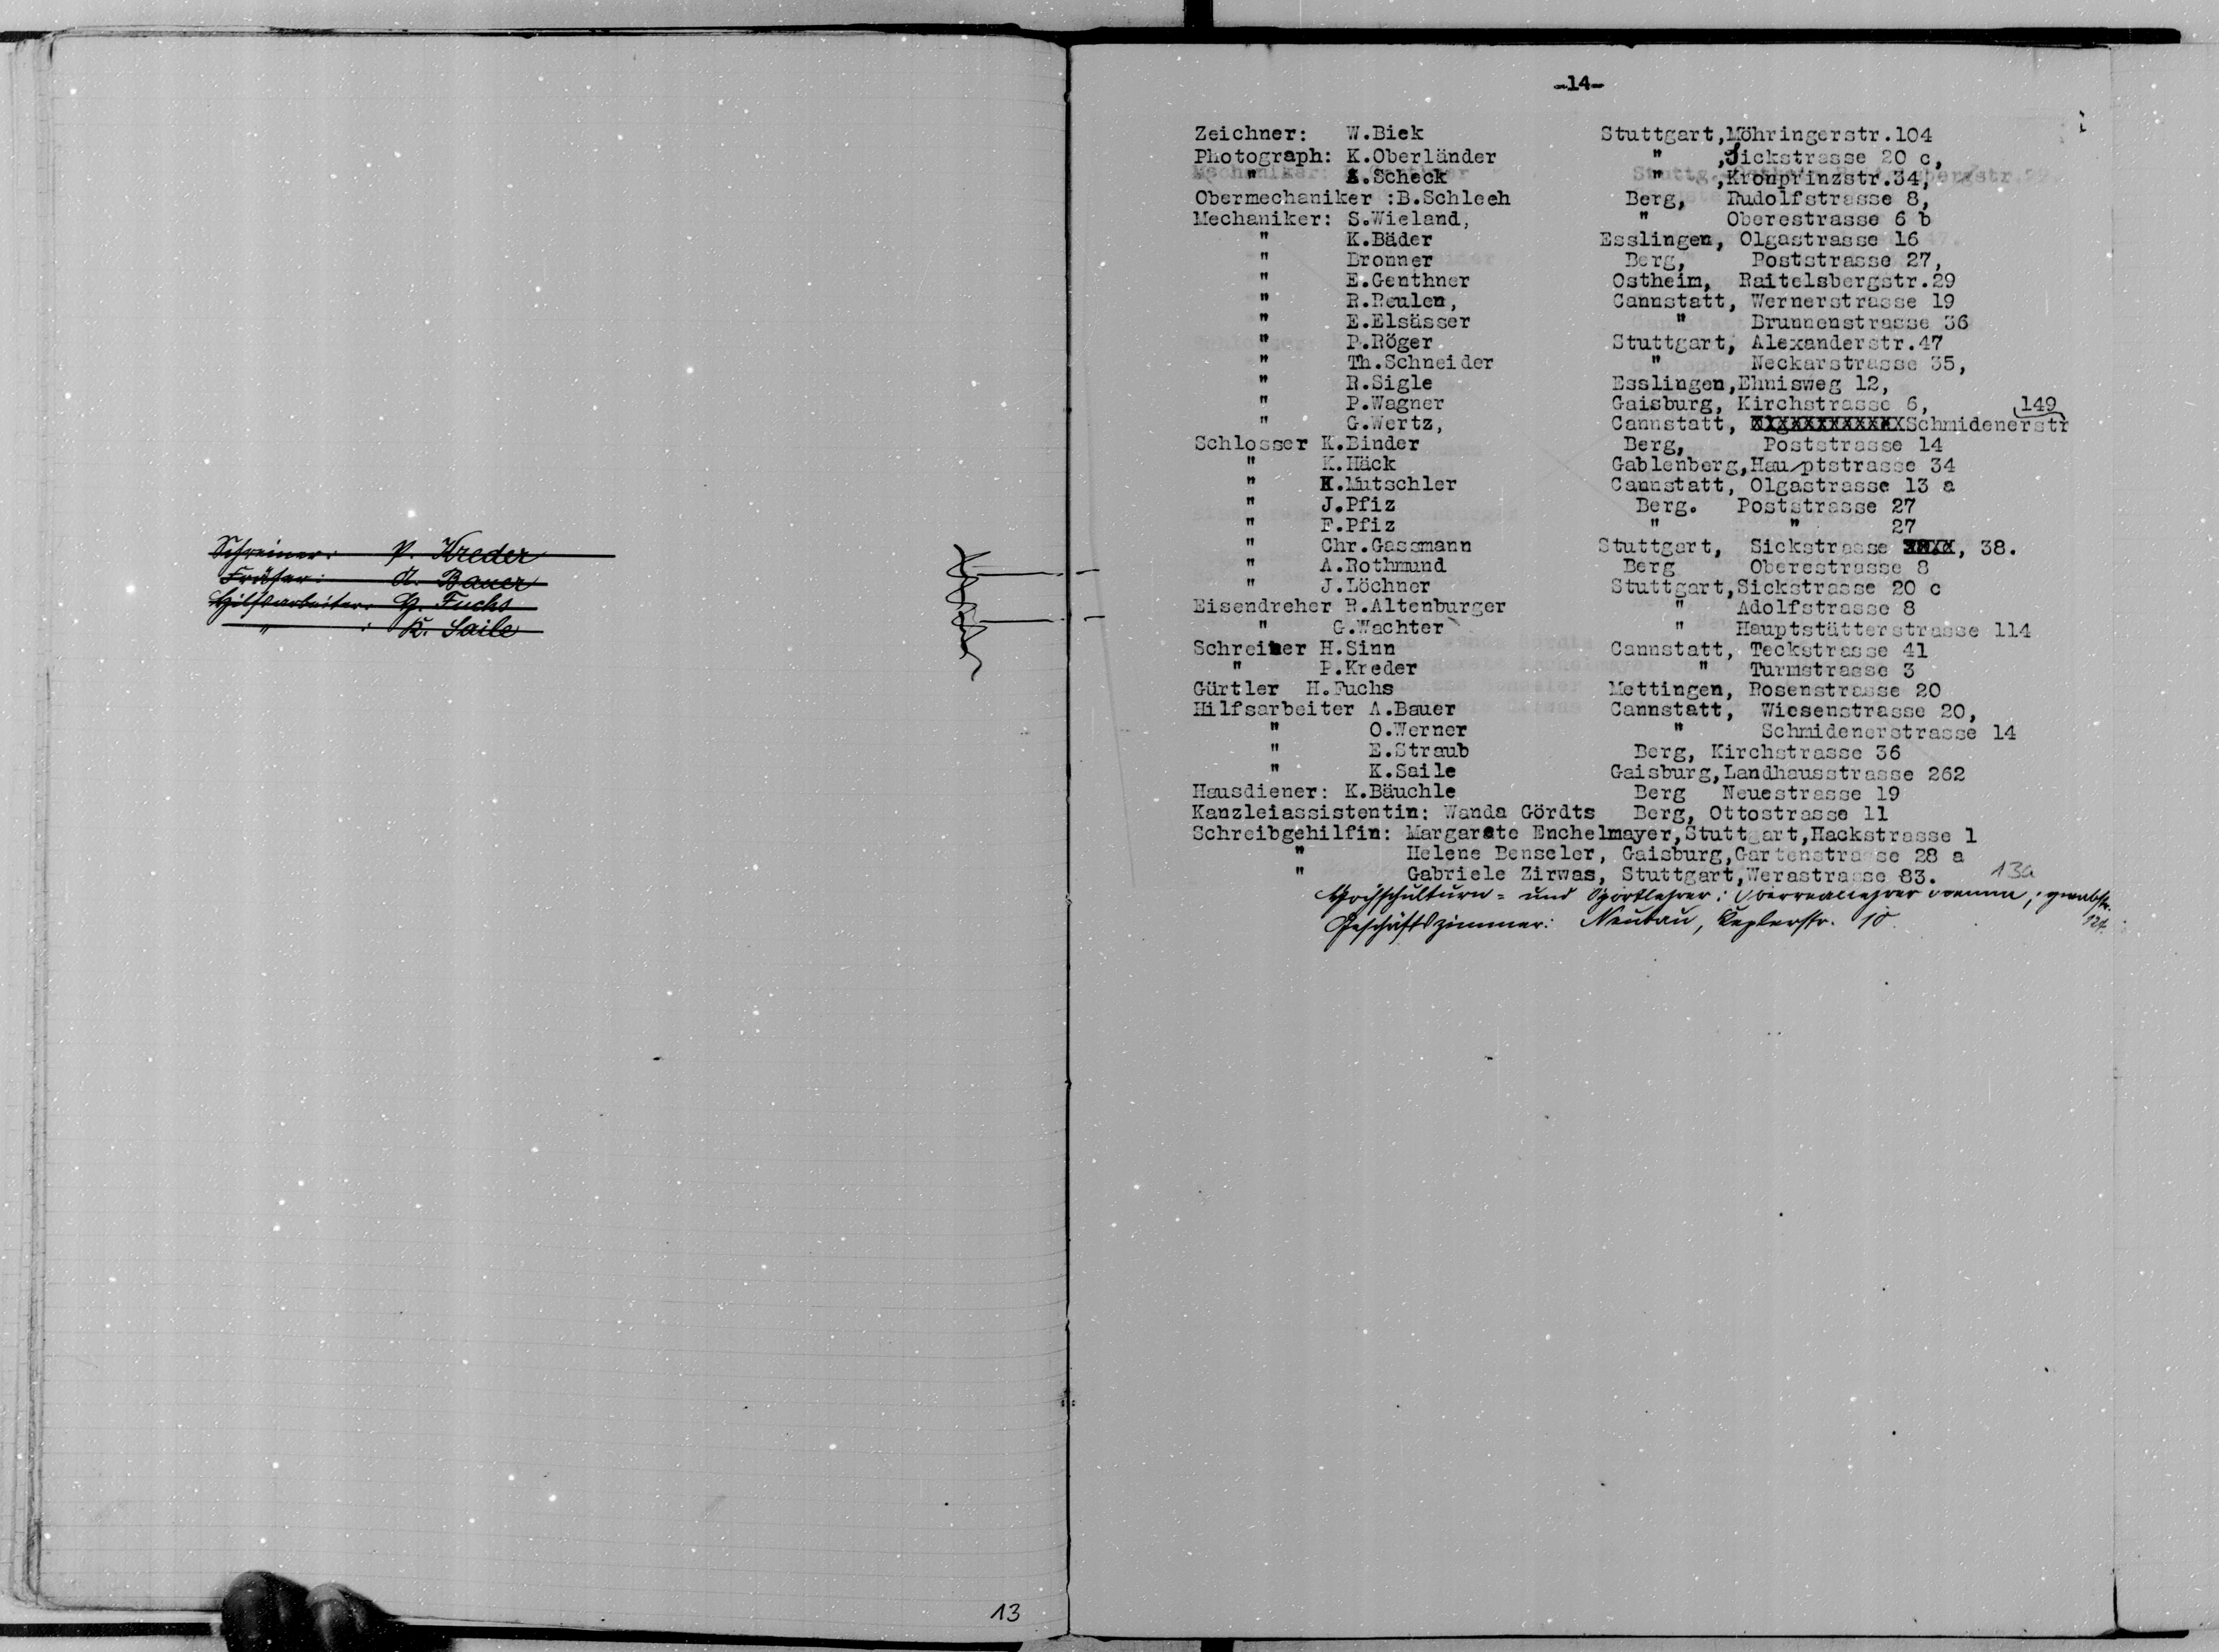 Schreiner: P. Kreder
Fräser: A. Bauer
Hilfsarbeiter: H. Fuchs
" : K. Saile
13
-14-
Zeichner: W.Biek Stuttgart,Möhringerstr.104
Photograph: K.Oberländer " ,Sickstrasse 20 c,
" A.Scheck " ,Kronprinzstr.34,
Obermechaniker :B.Schleeh Berg, Rudolfstrasse 8,
Mechaniker: S.Wieland, " Oberestrasse 6 b
" K.Bäder Esslingen, Olgastrasse 16
" Bronner Berg, Poststrasse 27,
" E.Genthner Ostheim, Raitelsbergstr.29
" R.Reulen, Cannstatt, Wernerstrasse 19
" E.Elsässer " Brunnenstrasse 36
" P.Röger Stuttgart, Alexanderstr.47
" Th.Schneider " Neckarstrasse 35,
" R.Sigle Esslingen,Ehnisweg 12,
" P.Wagner Gaisburg, Kirchstrasse 6,
" G.Wertz, Cannstatt, Schmidenerstr 149
Schlosser K.Binder Berg, Poststrasse 14
" K.Häck Gablenberg,Hau/ptstrasse 34
" K.Mutschler Cannstatt, Olgastrasse 13 a
" J.Pfiz Berg. Poststrasse 27
" F.Pfiz " " 27
" Chr.Gassmann Stuttgart, Sickstrasse , 38.
" A.Rothmund Berg Oberestrasse 8
" J.Löchner Stuttgart,Sickstrasse 20 c
Eisendreher R.Altenburger " Adolfstrasse 8
" G.Wachter " Hauptstätterstrasse 114
Schreiner H.Sinn Cannstatt, Teckstrasse 41
" P.Kreder " Turmstrasse 3
Gürtler H.Fuchs Mettingen, Rosenstrasse 20
Hilfsarbeiter A.Bauer Cannstatt, Wiesenstrasse 20,
" O.Werner " Schmidenerstrasse 14
" E.Straub Berg, Kirchstrasse 36
" K.Saile Gaisburg,Landhausstrasse 262
Hausdiener: K.Bäuchle Berg Neuestrasse 19
Kanzleiassistentin: Wanda Gördts Berg, Ottostrasse 11
Schreibgehilfin: Margarete Enchelmayer,Stuttgart,Hackstrasse 1
" Helene Benseler, Gaisburg,Gartenstrasse 28 a
" Gabriele Zirwas, Stuttgart,Werastrasse 83.
13a
Hochschulturn= und Sportlehrer: Oberreallehrer
Geschäftszimmer: Neubau, Keplerstr. 10.